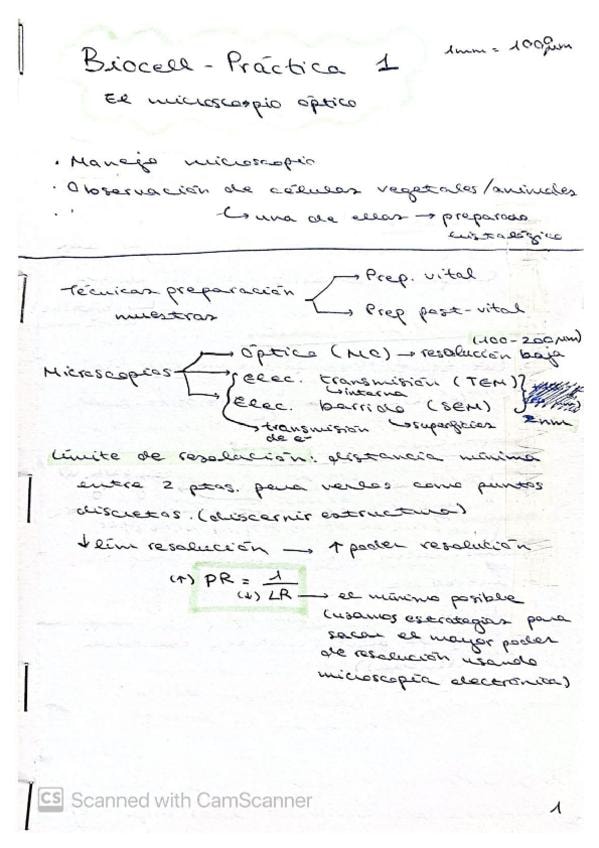 Biocell - Práctica 1
1mm = 1000µm
El microscopio óptico
· Manejo microscopio
· Observación de células vegetales/animales
↳ una de ellas → preparado
histológico
Técnicas preparación
muestras
→ Prep. vital
→ Prep post-vital
(100-200µm)
Microscopios
→ Óptico (MO) → resolución baja
→ Elec. transmisión (TEM)
↳ interna
→ Elec. barrido (SEM)
2nm
↳ transmisión
de e-
↳ superficies
Límite de resolución: distancia mínima
entre 2 ptos. para verlos como puntos
discretos. (discernir estructura)
↓ lím resolución → ↑ poder resolución
(↑) PR = 1
(↓) LR → el mínimo posible
(usamos estrategias para
sacar el mayor poder
de resolución usando
microscopía electrónica)
CS Scanned with CamScanner
1